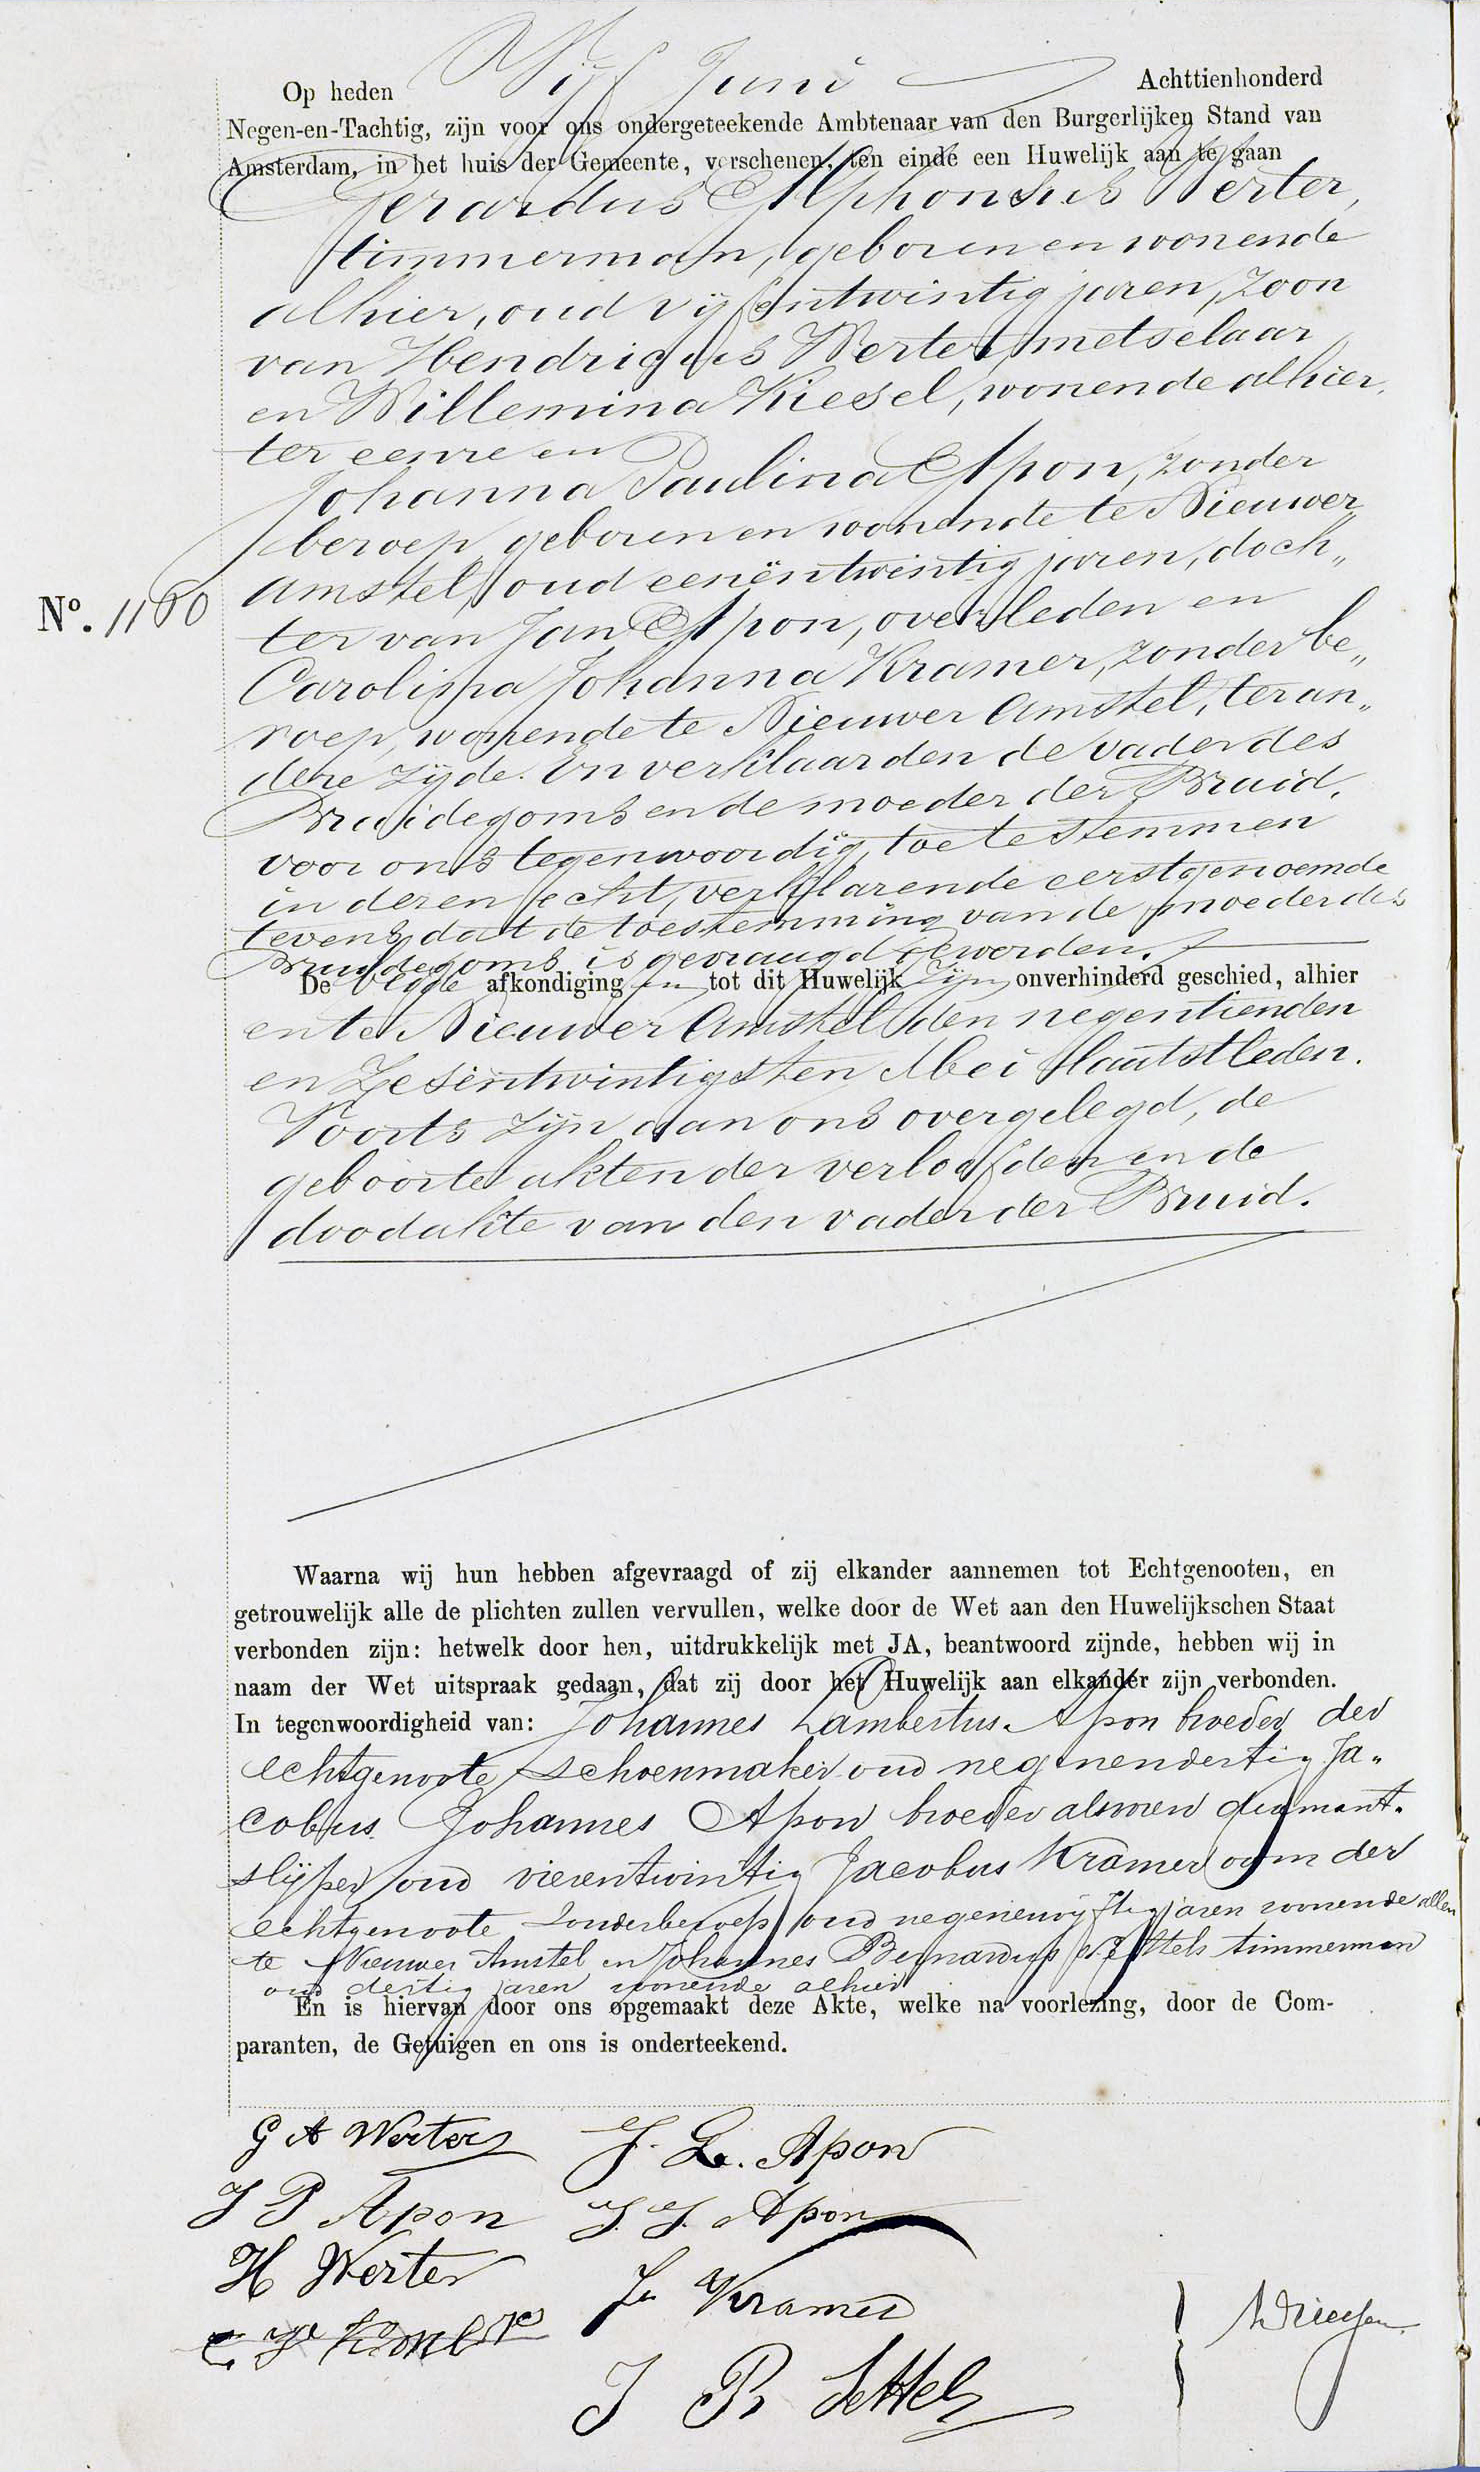 Op heden Vijf Juni Achttienhonderd
Negen-en-Tachtig, zijn voor ons ondergeteekende Ambtenaar van den Burgerlijken Stand van
Amsterdam, in het huis der Gemeente, verschenen, ten einde een Huwelijk aan te gaan
Gerardus Alphonsus Werter,
timmerman, geboren en wonende
alhier, oud vijfentwintig jaren, zoon
van Hendricus Werter, metselaar
en Willemina Kiesel, wonende alhier,
ter eenre en
Johanna Paulina Apon, zonder
beroep, geboren en wonende te Nieuwer
Amstel, oud eenëntwintig jaren, doch„
ter van Jan Apon, overleden en
Carolina Johanna Kramer, zonder be„
Nº. 1180
roep, wonende te Nieuwer Amstel, ter an„
dere zijde. En verklaarden de vader des
Bruidegoms en de moeder der Bruid,
voor ons tegenwoordig, toe te stemmen
in deren echt, verklarende eerstgenoemde
tevens dat de toestemming van de moeder des
Bruidegoms is gevraagd geworden.
De beide afkondigingen tot dit Huwelijk zijn onverhinderd geschied, alhier
en te Nieuwer Amstel den negentienden
en Zesëntwintigsten Mei laatstleden.
Voorts zijn aan ons overgelegd, de
geboorteakten der verloofden en de
doodakte van den vader der Bruid.
Waarna wij hun hebben afgevraagd of zij elkander aannemen tot Echtgenooten, en
getrouwelijk alle de plichten zullen vervullen, welke door de Wet aan den Huwelijkschen Staat
verbonden zijn: hetwelk door hen, uitdrukkelijk met JA, beantwoord zijnde, hebben wij in
naam der Wet uitspraak gedaan, dat zij door het Huwelijk aan elkander zijn verbonden.
In tegenwoordigheid van: Johannes Lambertus Apon broeder der
echtgenoote schoenmaker oud negenendertig Ja„
cobus Johannes Apon broeder alsvoren diamant„
slijper oud vierentwintig Jacobus Kramer oom der
echtgenoote zonder beroep oud negenenvijftig jaren wonende allen
te Nieuwer Amstel en Johannes Bernardus Settels timmerman
oud dertig jaren wonende alhier
En is hiervan door ons opgemaakt deze Akte, welke na voorlezing, door de Com-
paranten, de Getuigen en ons is onderteekend.
G A Werter J. L. Apon
J P Apon J. J. Apon
H Werter Js Kramer
J B Settels